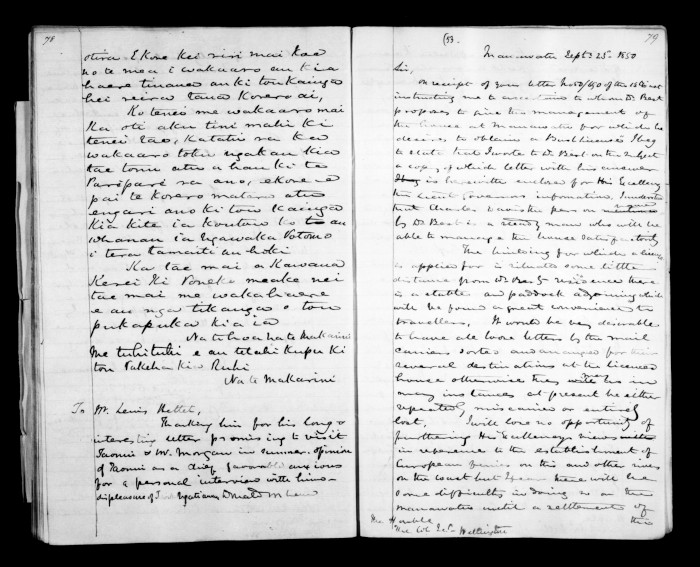 78
otira Ekore kei riri mai koe
no te mea i wakaaro au kia
haere tinana au ki tou Kainga
hei reira taua Korero ai,
Ko tenei me wakaaro mai
Ka oti aku tini mahi ki
tenei tao, Katahi ra ka
wakaaro toku ngakau kia
tae tonu atu ahau ki te
Paripari ra ano, ekore e
pai te Korero matara atu
engari ano ki tou Kainga
Kia kite ia koutou ko au
whanau ia Ngawaka Potomo
i tera tamaiti au hoki
Ka tae mai a Kawana
Kerei Ki Poneke meake nei
tae mai me wakahaere
e au nga tikanga o tou
pukapuka kia ia
Na to hoa na te Makarini
Me tuhituhi e au tetahi Kupu Ki
tou Pakeha kia Ruhi
Na te Makarini
To Mr. Lewis Hettet,
Thanking him for his long &
interesting letter promising to visit
Taonui & Mr. Morgan in summer. opinion
of Taonui as a chief favorable anxious
for a personal interview with him -
displeasure of Donald McLean
(53. 79
Manawatu Septr 25th 1850
Sir,
on receipt of your letter No 50/690 of the 18th inst
instructing me to ascertain to whom Dr Best
proposes to give the management of
the house at Manawatu for which he
desires to obtain a Bush license I beg
to state that I wrote to Dr Best on the subject
a copy of which letter with his answer
is herewith enclosed for His Excellency
the Lieut Governors information, I understand
that Charles the person named
by Dr Best is a steady man who will be
able to manage the house satisfactorily
The building for which a license
is applied for is situate some little
distance from Dr Best's residence there
is a stable and paddock adjoining which
will be found a great convenience to
travellers. It would be very desirable
to have all loose letters by the mail
carriers sorted and arranged for their
several destinations at the licensed
house otherwise they will be in
many instances as at present be either
repeatedly miscarried or entirely
lost, I will lose no opportunity of
furthering His Excellency's views
in reference to the establishment of
European ferries on this and other rivers
on the coast but I fear there will be
some difficulty in doing so on the
Manawatu until a settlement of
the
The Honble
The Col Secy Wellington